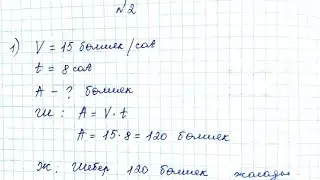 №2
1) V = 15 бөлшек/сағ
t = 8 сағ
A - ? бөлшек
Ш: A = V · t
A = 15 · 8 = 120 бөлшек
Ж: Шебер 120 бөлшек жасады